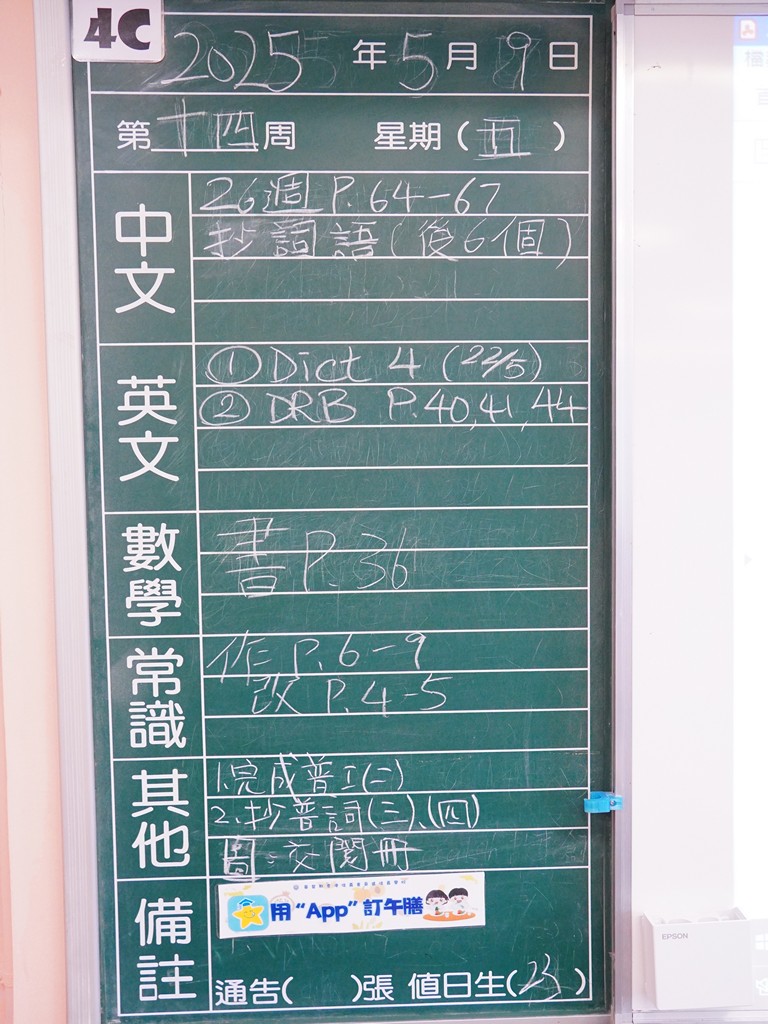 4C
2025年5月9日
第十四周 星期(五)
中文
26週 P.64-67
抄詞語(後6個)
英文
① Dict 4 (22/5)
② DRB P.40,41,44
數學
書 P.36
常識
作 P.6-9
改 P.4-5
其他
1.完成普工(二)
2.抄普詞(三)、(四)
圖:交閱冊
備註
用“App”訂午膳
通告( )張 值日生(23)
EPSON